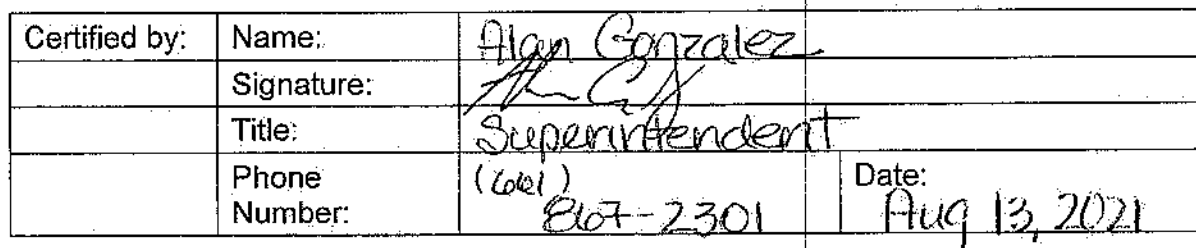 Certified by: Name: Alan Gonzalez
Signature:
Title: Superintendent
Phone (661) Date:
Number: 867-2301 Aug 13, 2021